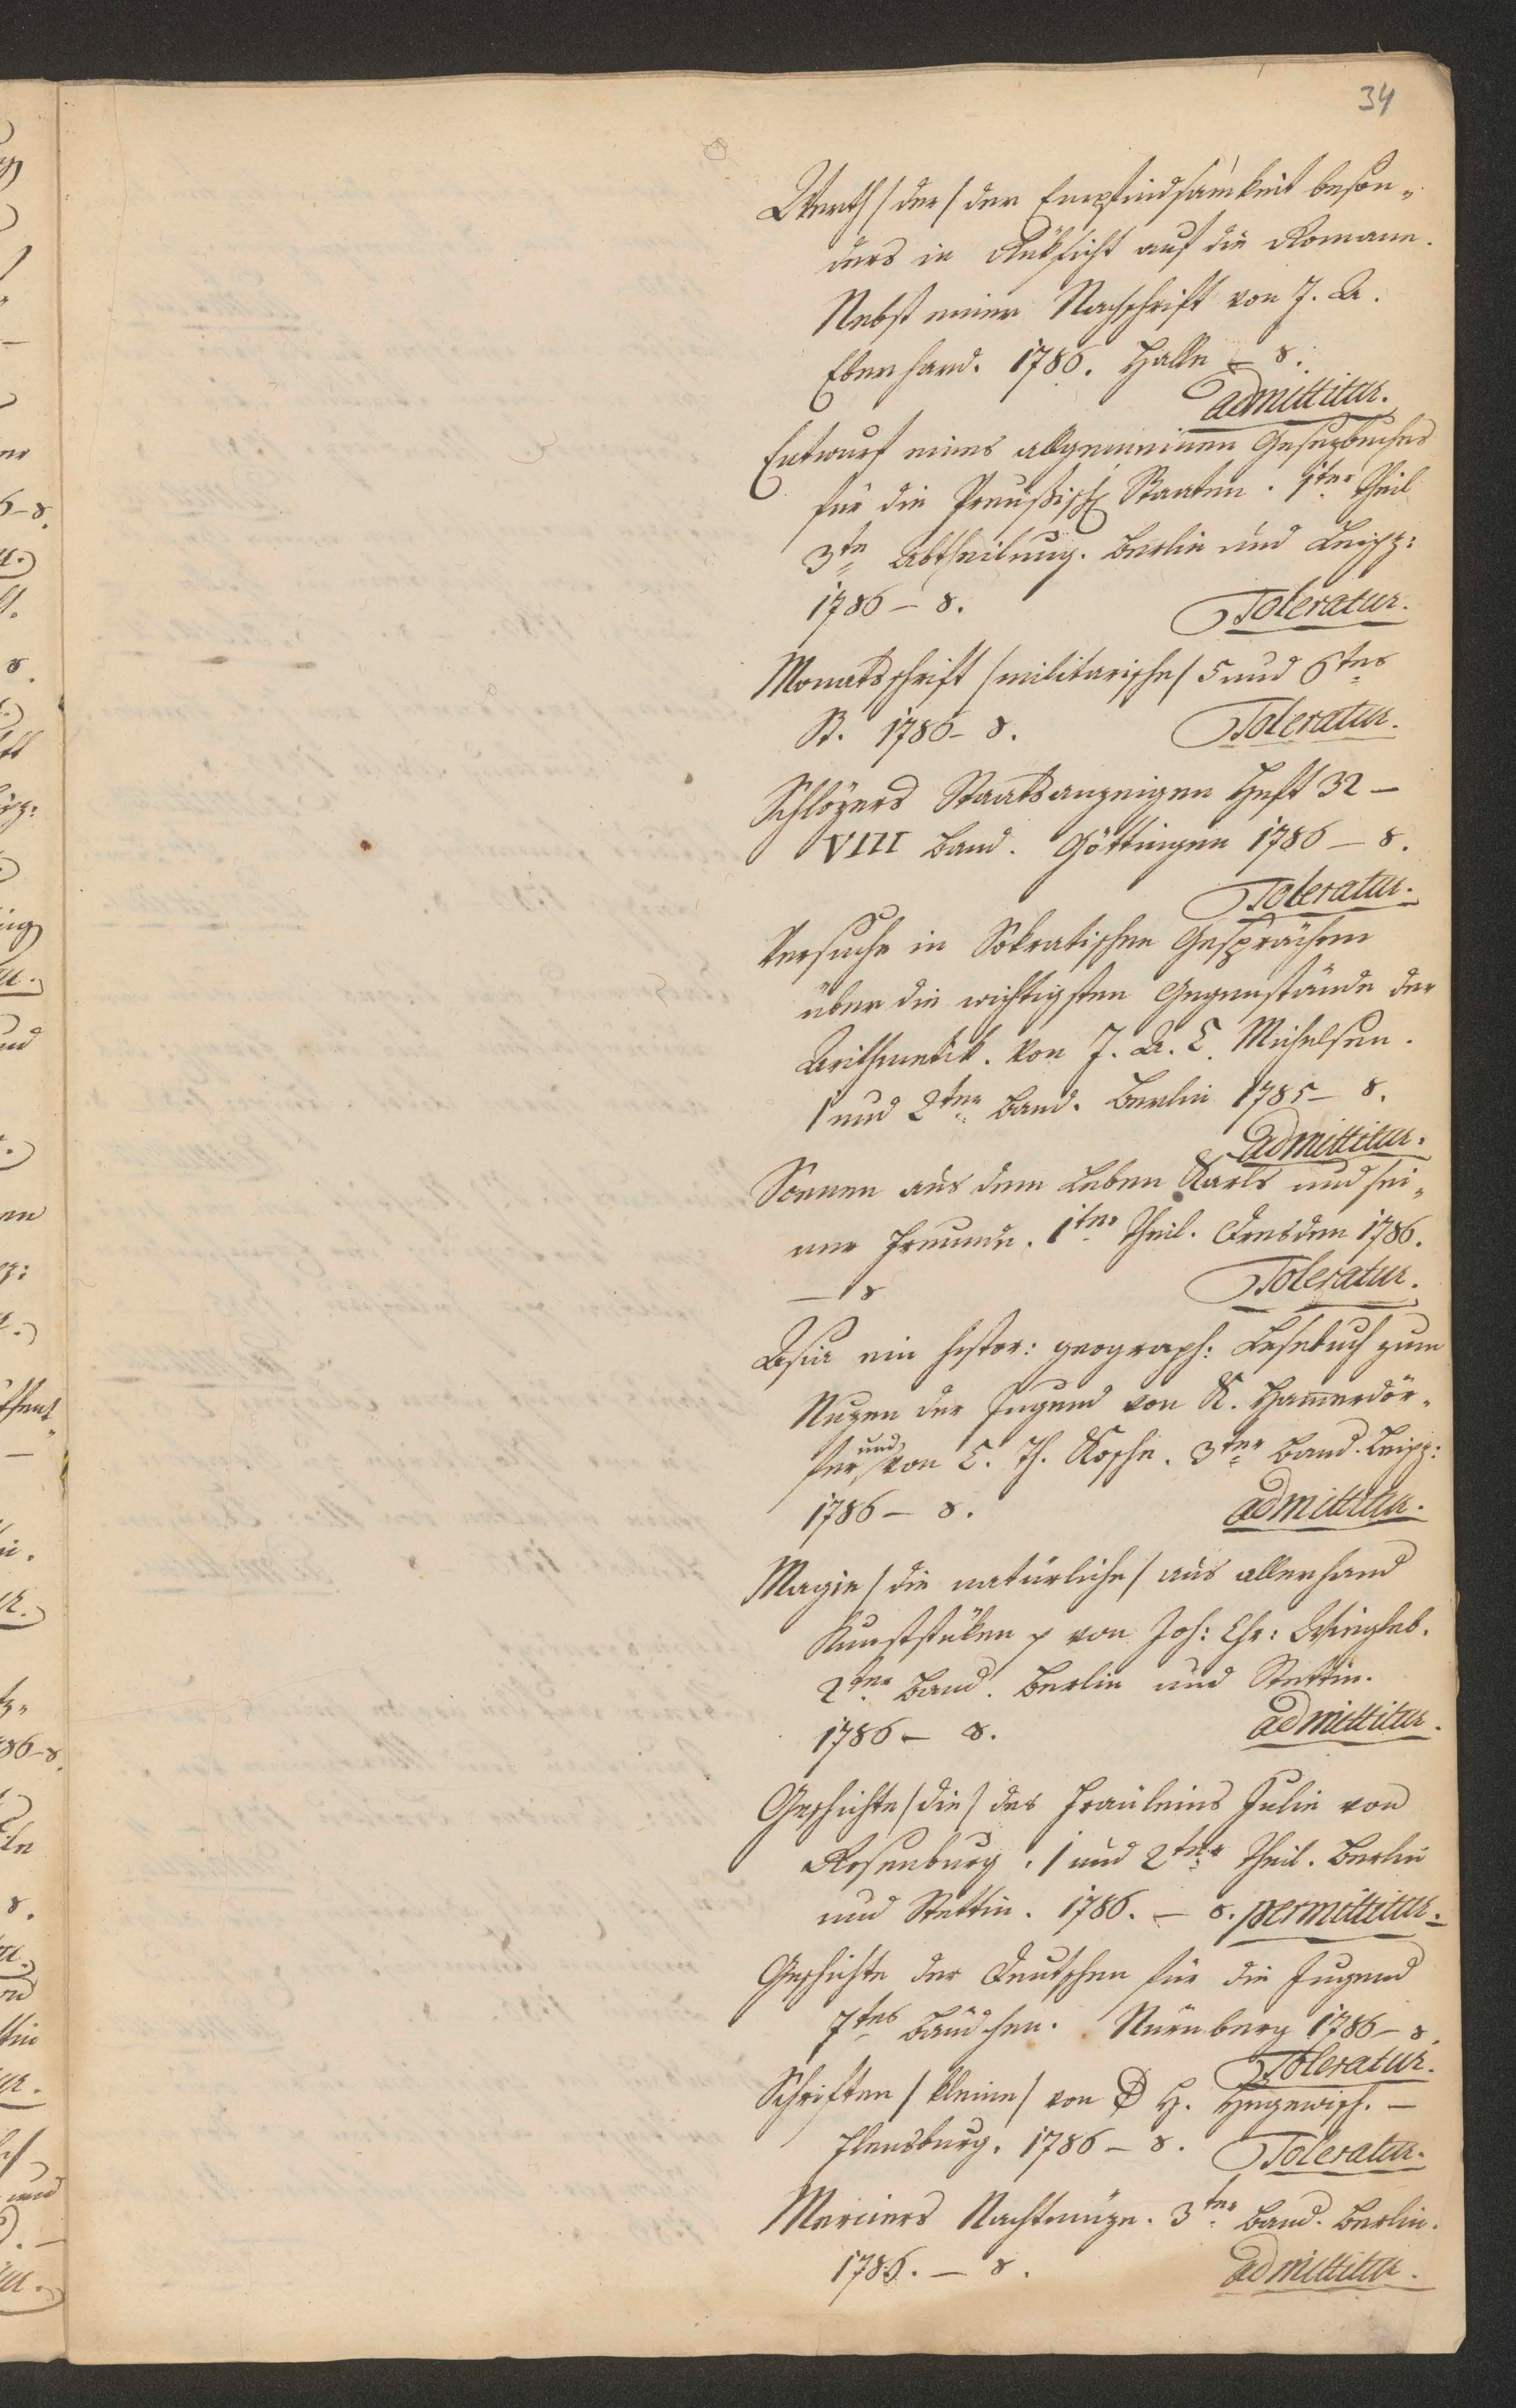 34
Werth /der/ der Empfindsamkeit beson„
ders in Rüksicht auf die Romane.
Nebst einer Nachschrift von J. A.
Eberhard. 1786. Halle – 8.
admittitur.
Entwurf eines allgemeinen Gesezbuches
für die Preußisch Staaten. 1ter Theil
3te Abtheilung. Berlin und Leipz:
1786 – 8. Toleratur.
Monatsschrift /militarische/ 5 und 6tes
St. 1786 – 8. Toleratur.
Schlözers Staatsanzeigen Heft 32 –
VIII Band. Göttingen 1786 – 8.
Toleratur.
Versuche in Sokratischen Gesprächen
über die wichtigsten Gegenstände der
Arithmetik. von J. A. C. Michelsen.
1 und 2ter Band. Berlin 1785 – 8.
admittitur.
Scenen aus dem Leben Karls und sei„
ner Freunde. 1ter Theil. Dresden 1786.
– 8 Toleratur.
Asia ein histor: geograph: Lesebuch zum
Nuzen der Jugend von K. Hammerdör„
fer und von C. Th. Kosche. 3ter Band. Leipz:
1786 – 8. admittitur.
Magie /die natürliche/ aus allerhand
Kunststüken p von Joh: Chr: Wiegleb.
2ter Band. Berlin und Stettin.
1786 – 8. admittitur.
Geschichte /die/ des Fräuleins Julie von
Rosenburg. 1 und 2ter Theil. Berlin
und Stettin. 1786. – 8. permittitur.
Geschichte der Deutschen für die Jugend
7tes Bändchen. Nürnberg 1786 – 8.
Toleratur.
Schriften /kleine/ von D H. Hegewisch. –
Flensburg. 1786 – 8. Toleratur.
Merciers Nachtmüze. 3ter Band. Berlin.
1786. – 8. admittitur.